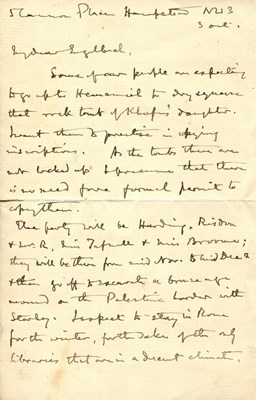 5 Cannon Place Hampstead NW3
3 Oct.
My dear Engelbach,
Some of our people are expecting
to go up to Hemamieh to dry squeeze
that rock tomb of Khufu's daughter.
I want them to practise in copying
inscriptions. As the tombs there are
not locked up I presume that there
is no need for a formal permit to
copy them.
The party will be Harding, Risdon
& Mrs R, Miss Tufnell & Miss Broome;
they will be there from mid Nov. to mid Dec
& then go off to research a bronze age
mound on the Palestine border with
Starkey. I expect to stay in Rome
for the winter, for the sake of the only
libraries that are in a decent climate.